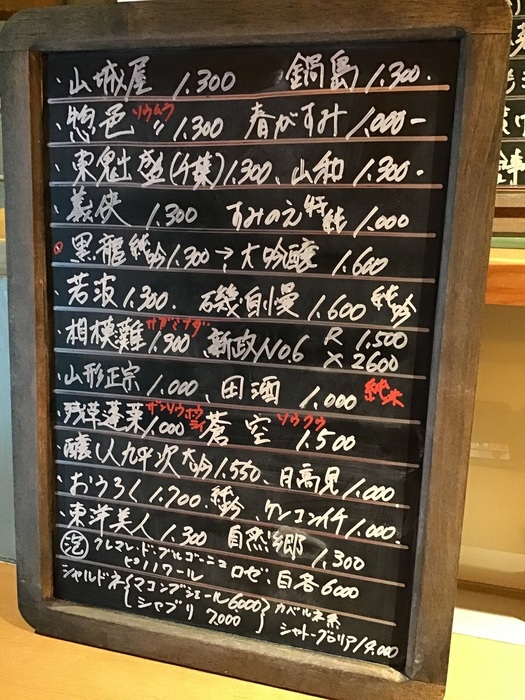 ・山城屋 1.300 鍋島 1.300.
・惣色 ソウムウ 〃 1.300 春がすみ 1,000-
・東鬼士盛(千葉)1.300、山和 1.300-
・義侠 1.300 すみのえ 特純 1,000
・黒龍 純吟 1.300→大吟醸 1.600
・若波 1.300. 磯自慢 1,600 純吟
・相模灘 サガミナダ 1,900 新政No.6 R 1,500 X 2600
・山形正宗 1,000、田酒 1,000 純米
・残草蓬莱 ザンソウホウライ 1,000 蒼空 ソウクウ 1,500
・醸し人九平次 大吟 1,550、日高見 1,000.
・おうろく 1,700. 純吟 ケンコンイチ 1,000.
・東洋美人 1,300 自然郷 1,300
泡 クレマン・ド・ブルゴーニュ ロゼ、白各6000
ピノノワール
シャルドネ{マコンヴシェール6000 カベルネ系
シャブリ 7,000} シャトーグロリア 14,000